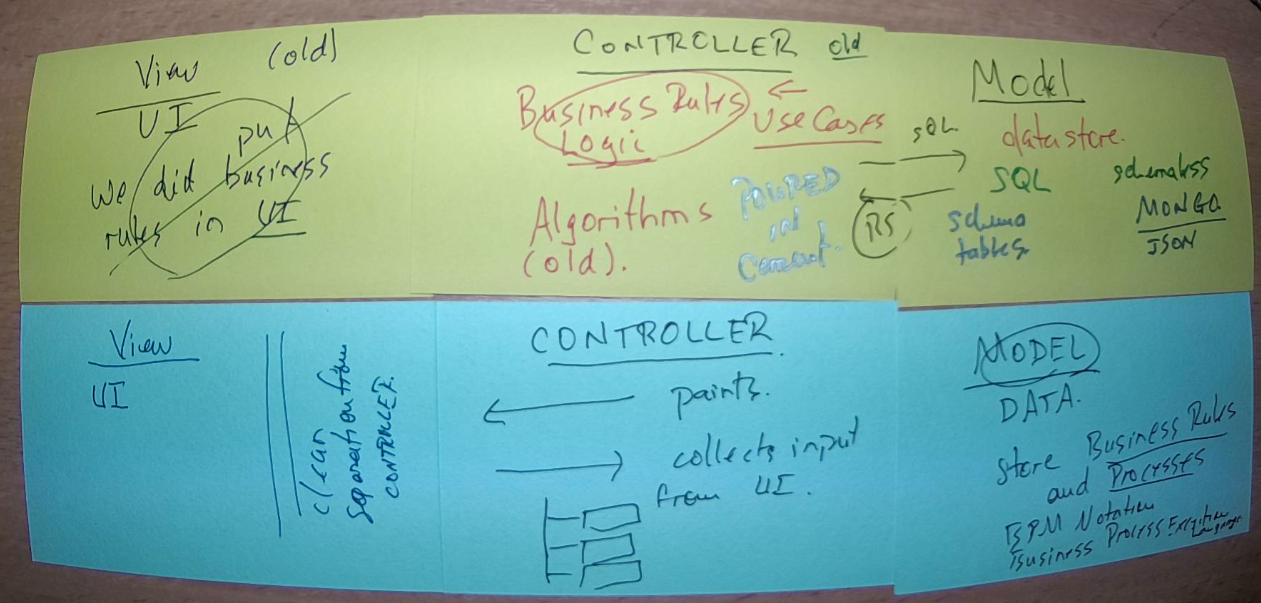 View (old)
UI
We did put business
rules in UI
CONTROLLER old
Business Rules ←
Logic
Use Cases
Algorithms
(old).
POURED
in
Cement.
SQL
RS
Model
datastore.
SQL
schema
tables
schemaless
MONGO
JSON
View
UI
clean
separation from
CONTROLLER.
CONTROLLER
paints.
collects input
from UI.
MODEL
DATA.
Store Business Rules
and Processes
BPM Notation
Business Process Execution
Language